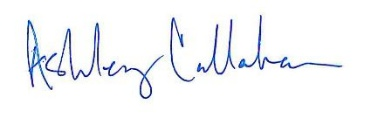 Ashley Callahan